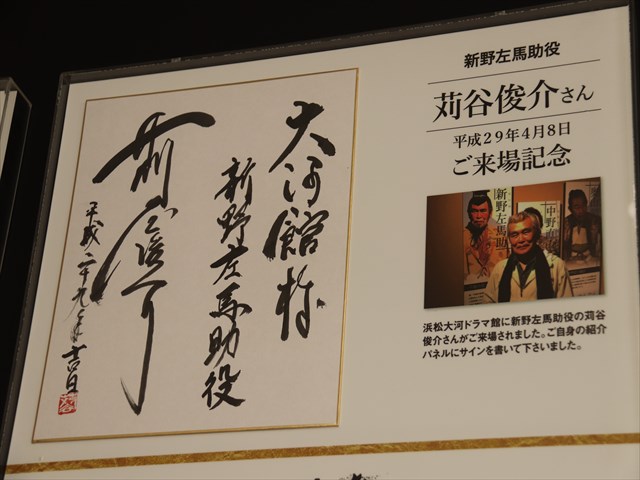 大河館様
新野左馬助役
苅谷俊介
平成二十九年吉日
新野左馬助役
苅谷俊介さん
平成29年4月8日
ご来場記念
新野左馬助
中野直
浜松大河ドラマ館に新野左馬助役の苅谷
俊介さんがご来場されました。ご自身の紹介
パネルにサインを書いて下さいました。